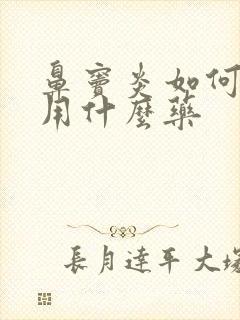 鼻窦炎如何
用什麼藥
長月達平大塚